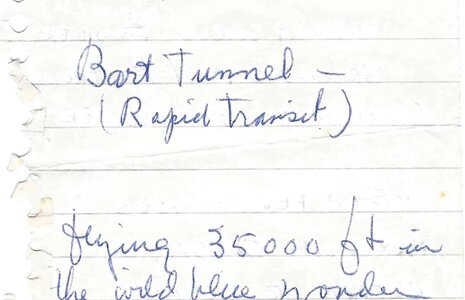 Bart Tunnel –
(Rapid Transit)
flying 35000 ft in
the wild blue wonder